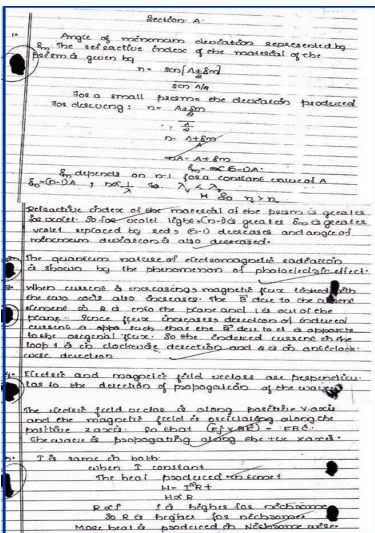 Section A
1. Angle of minimum deviation represented by
δm. The refractive index of the material of the
prism is given by
n = sin[A+δm/2]
sin A/2
For a small prism the deviation produced
n = A+δm
2
A
2
n = A+δm
A
nA = A+δm
δm = (n-1)A.
δm depends on n-1 for a constant value of A
δm=(n-1)A, n∝ 1/λ so λv < λr
So n > n
Refractive index of the material of the prism is greater
for violet. So for violet light (n-1) is greater δm is greater
violet replaced by red (n-1) decreases and angle of
minimum deviation is also decreased.
The quantum nature of electromagnetic radiation
is shown by the phenomenon of photoelectric effect.
When current is increasing magnetic flux linked with
the two coils also increases. The B due to the current
element in 2 is into the plane and 1 is out of the
plane. Since flux increases direction of induced
current is oppo such that the B due to it is opposite
to the original flux. So the induced current in the
loop 1 is in clockwise direction and 2 is in anticlock
wise direction.
Electric and magnetic field vectors are perpendicu
lar to the direction of propagation of the wave.
The electric field vector is along positive Y axis
and the magnetic field is oscillating along the
positive z axis. So that
The wave is propagating along the +ve x axis.
I is same in both
when I constant
The heat produced
H = I²Rt
H∝R
R∝ρ ρ is higher for nichrome
So R is higher for nichrome
More heat is produced in Nichrome wire.